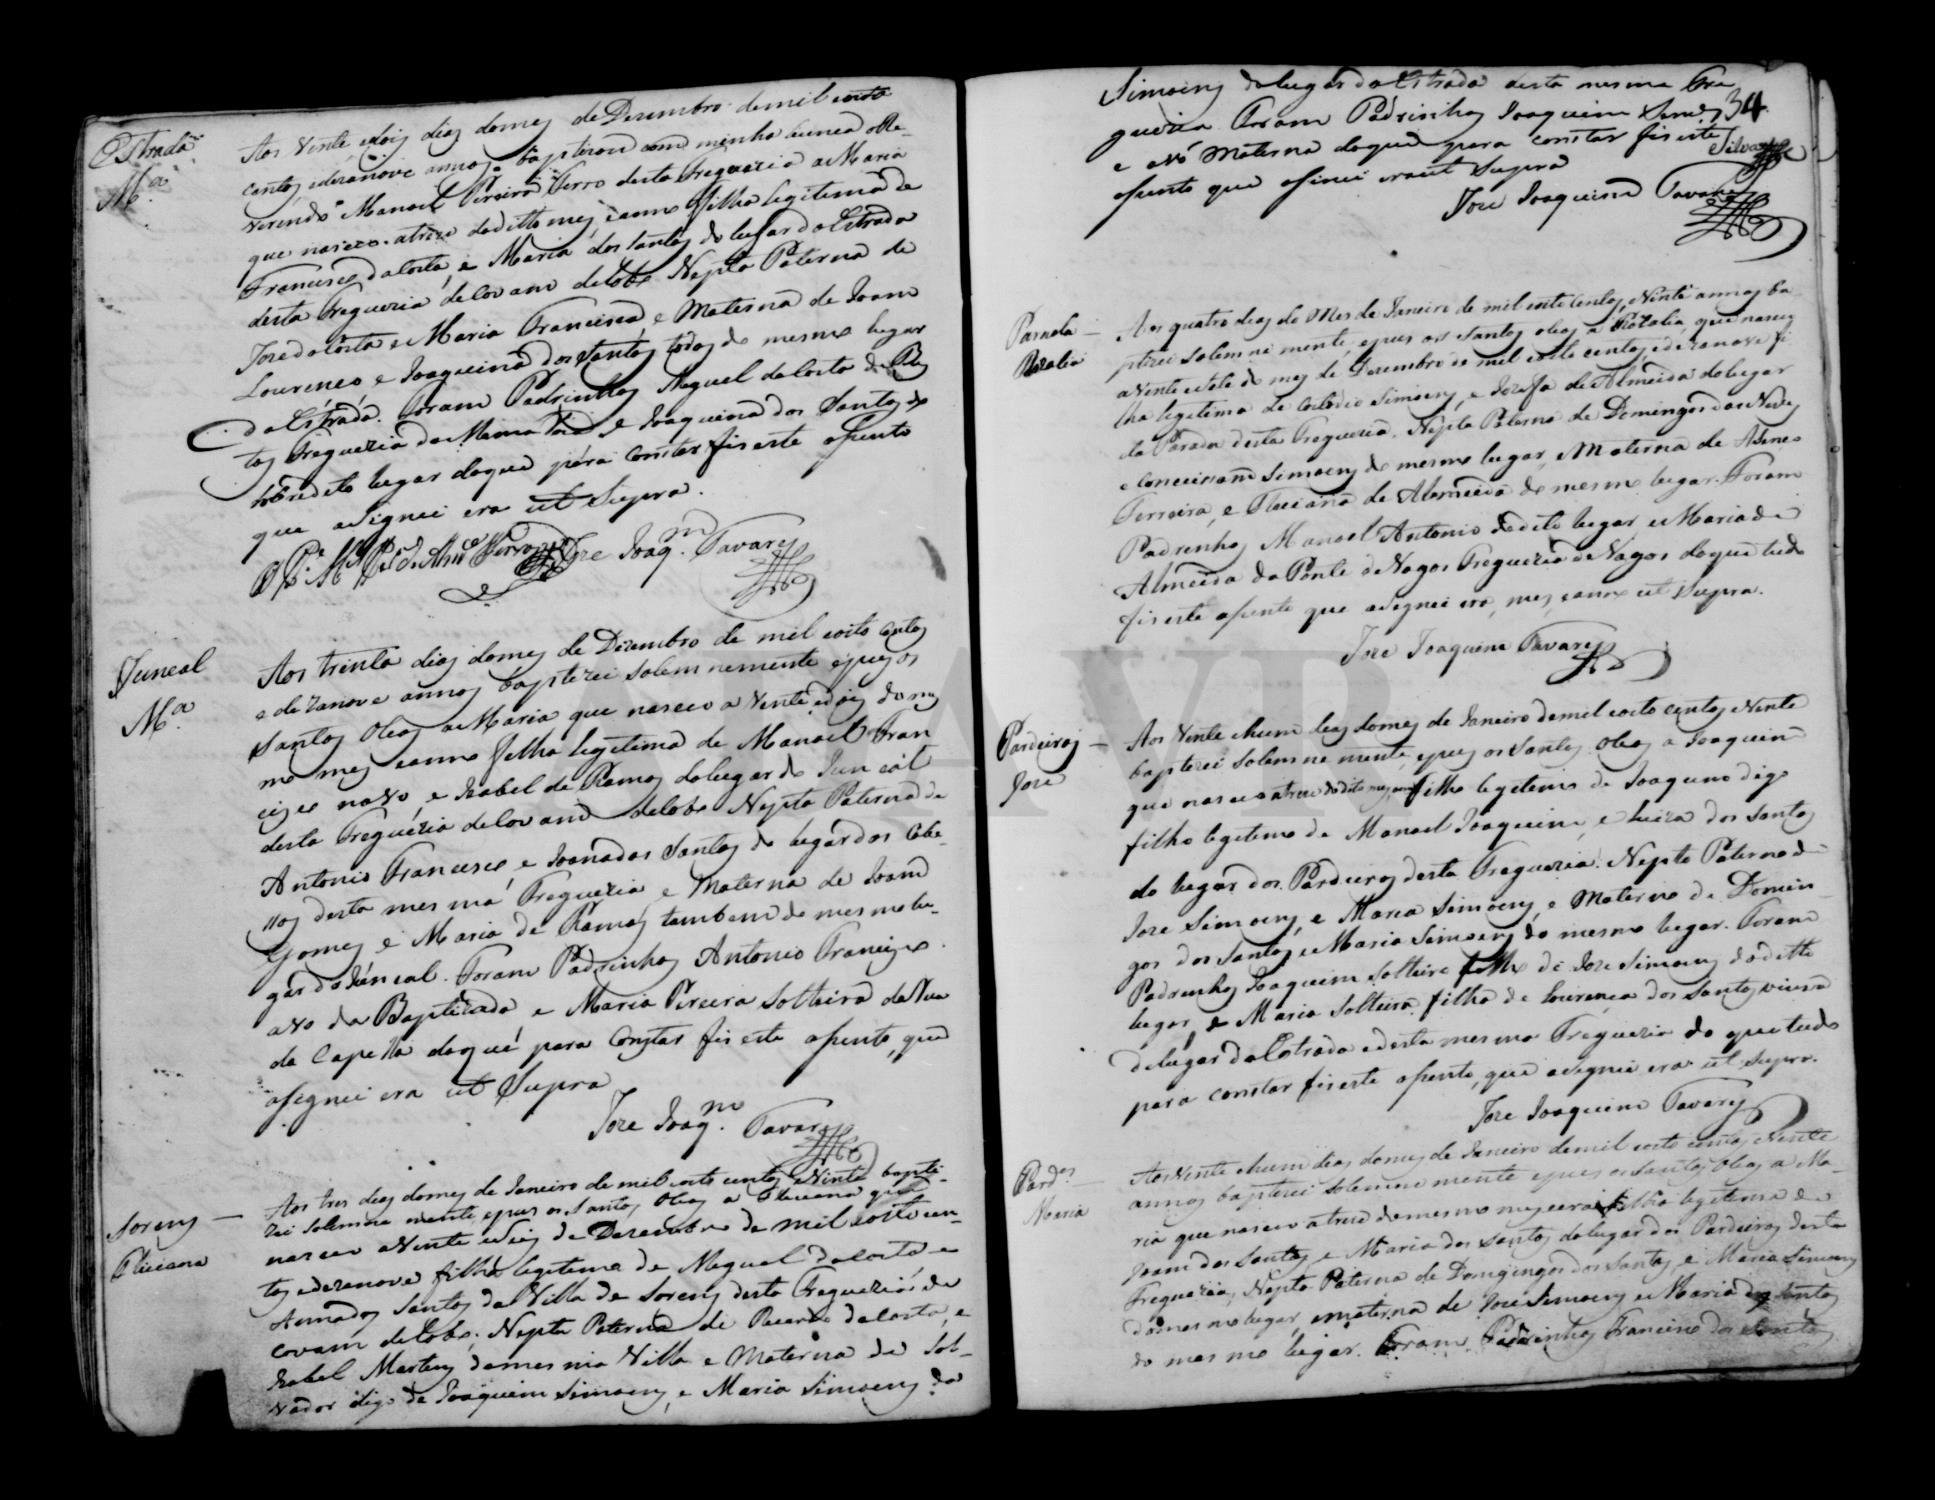 Estrada
M.ª
Aos vinte e dois dias do mes de Dezembro de mil oito
centos e dezanove annos baptizou com minha licença o Re-
verendo Manoel Pereira Ferro desta Freguezia a Maria
que nasceo a treze do ditto mes e anno filha legitima de
Francisco da Costa, e Maria dos Santos do lugar da Estrada
desta Freguezia de Covam do Lobo Nepta Paterna de
Joze da Costa e Maria Francisca, e Materna de Joam
Lourenço e Joaquina dos Santos todos do mesmo lugar
da Estrada. Foram Padrinhos Miguel da Costa de
Freguezia da Mama Roza e Joaquina dos Santos do
sobredito lugar do que para constar fis este asento
que asignei era ut Supra.
Joze Joaq.m Tavares
Juncal
M.ª
Aos trinta dias do mes de Dezembro de mil oito centos
e dezanove annos baptizei solemnemente e pus os
Santos Oleos a Maria que nasceo a vinte e dois do mes
mo mes e anno filha legitima de Manoel Fran
cisco novo, e Izabel de Ramos do lugar do Juncal
desta Freguezia de Covam do Lobo Nepta Paterna de
Antonio Francisco, e Joanna dos Santos do lugar dos Cabe-
ssos desta mesma Freguezia e Materna de Joam
Gomes e Maria de Ramos tambem do mesmo lu-
gar do Juncal. Foram Padrinhos Antonio Francisco
avo da Baptizada e Maria Pereira solteira da Rua
da Capella do que para constar fis este asento, que
asignei era ut Supra
Joze Joaq.m Tavares
Sorens
Eliciana
Aos tres dias do mes de Janeiro de mil oito centos e vinte bapti-
zei solemne mente e pus os Santos Oleos a Eliciana que
nasceo a vinte e seis de Dezembro de mil oito cen-
tos e dezanove filha legitima de Miguel da Costa e
Anna dos Santos da Villa de Sorens desta Freguezia de
Covam do Lobo. Nepta Paterna de Ricardo da Costa, e
Izabel Martins da mesma Villa e Materna de Sal-
vador digo de Joaquim Simoens, e Maria Simoens da
34
Simoens do lugar da Estrada desta mesma Fre
guezia Foram Padrinhos Joaquim
e avó Materna do que para constar fis este
asento que asinei era ut Supra
Silva
Joze Joaquim Tavares
Parada
Rozalia
Aos quatro dias do Mes de Janeiro de mil oito centos, e vinte annos ba
ptizei solemne mente, e pus os Santos oleos a Rozalia, que nasceo
a vinte e sete do mes de Dezembro de mil oito centos, e dezanove fi
lha legitima de Custodio Simoens, e Jozefa de Almeida do lugar
da Parada desta Freguezia. Nepta Paterna de Domingos das Neves
e Conceissam Simoens do mesmo lugar, e Materna de
Ferreira, e Eliciana de Almeida do mesmo lugar. Foram
Padrinhos Manoel Antonio do dito lugar e Maria de
Almeida da Ponte de Vagos Freguezia de Vagos do que tudo
fis este asento que asignei era, mes, e anno ut Supra.
Joze Joaquim Tavares
Pardeiros
Joze
Aos vinte e hum dias do mes de Janeiro de mil oito centos e vinte
baptizei solemne mente, e pus os Santos Oleos a Joaquim
que nasceo a treze do dito mes, e anno filho legitimo de Joaquim digo
filho legitimo de Manoel Joaquim, e Luiza dos Santos
do lugar dos Pardeiros desta Freguezia. Nepto Paterno de
Joze Simoens, e Maria Simoens, e Materno de Domin
gos dos Santos e Maria Simoens do mesmo lugar. Foram
Padrinhos Joaquim solteiro filho de Joze Simoens do ditto
lugar, e Maria solteira filha de Lourença dos Santos viuva
do lugar da Estrada e desta mesma Freguezia do que tudo
para constar fis este asento, que asignei era ut supra.
Joze Joaquim Tavares
Pard.os
Maria
Aos vinte e hum dias do mes de Janeiro de mil oito centos e vinte
annos baptizei solemne mente e pus os Santos Oleos a Ma-
ria que nasceo a treze do mesmo mes e era filha legitima de
Joam dos Santos, e Maria dos Santos do lugar dos Pardeiros desta
Freguezia, Nepta Paterna de Domingos dos Santos, e Maria Simoens
do mesmo lugar, e materna de Joze Simoens e Maria dos Santos
do mesmo lugar. Foram Padrinhos Francisco dos Santos
AVR